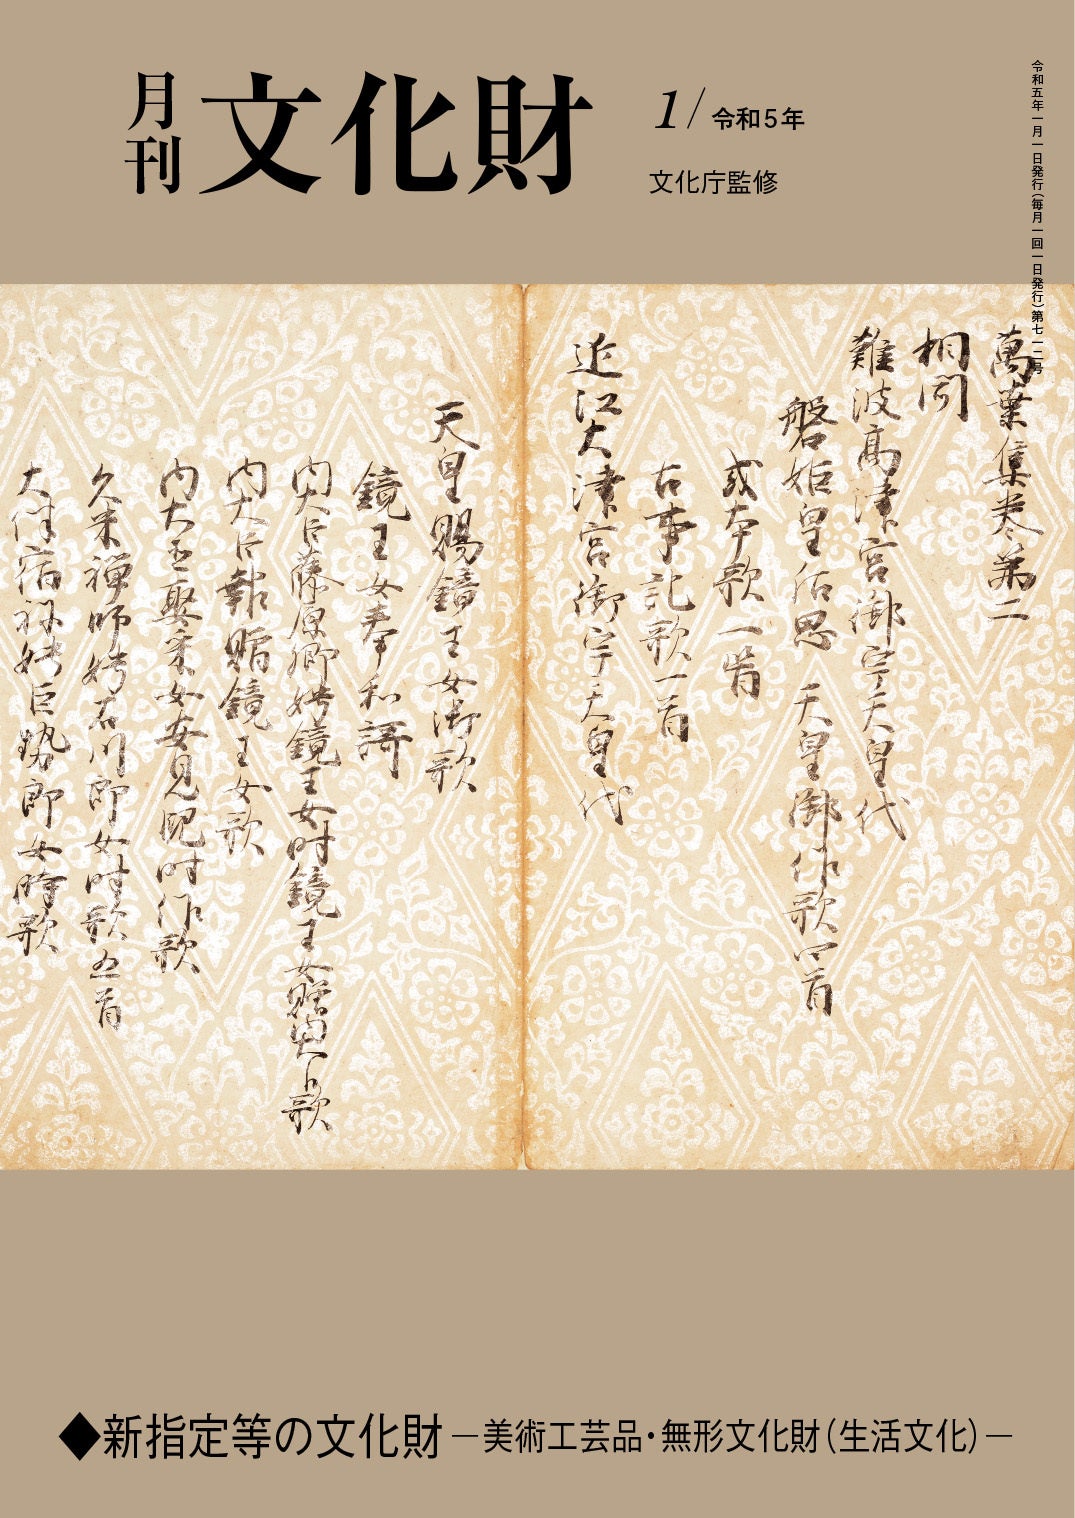 月刊 文化財
1/令和5年
文化庁監修
令和五年一月一日発行(毎月一回一日発行)第七一二号
萬葉集巻第二
相聞
難波高津宮御宇天皇代
磐姫皇后思 天皇御作歌四首
或本歌一首
古事記歌一首
近江大津宮御宇天皇代
天皇賜鏡王女御歌
鏡王女奉和謌
内大臣藤原卿娉鏡王女時鏡王女贈内大臣歌
内大臣報贈鏡王女歌
内大臣娶采女安見児時作歌
久米禅師娉石川郎女時歌五首
大伴宿祢娉巨勢郎女時歌
◆新指定等の文化財 —美術工芸品・無形文化財(生活文化)—